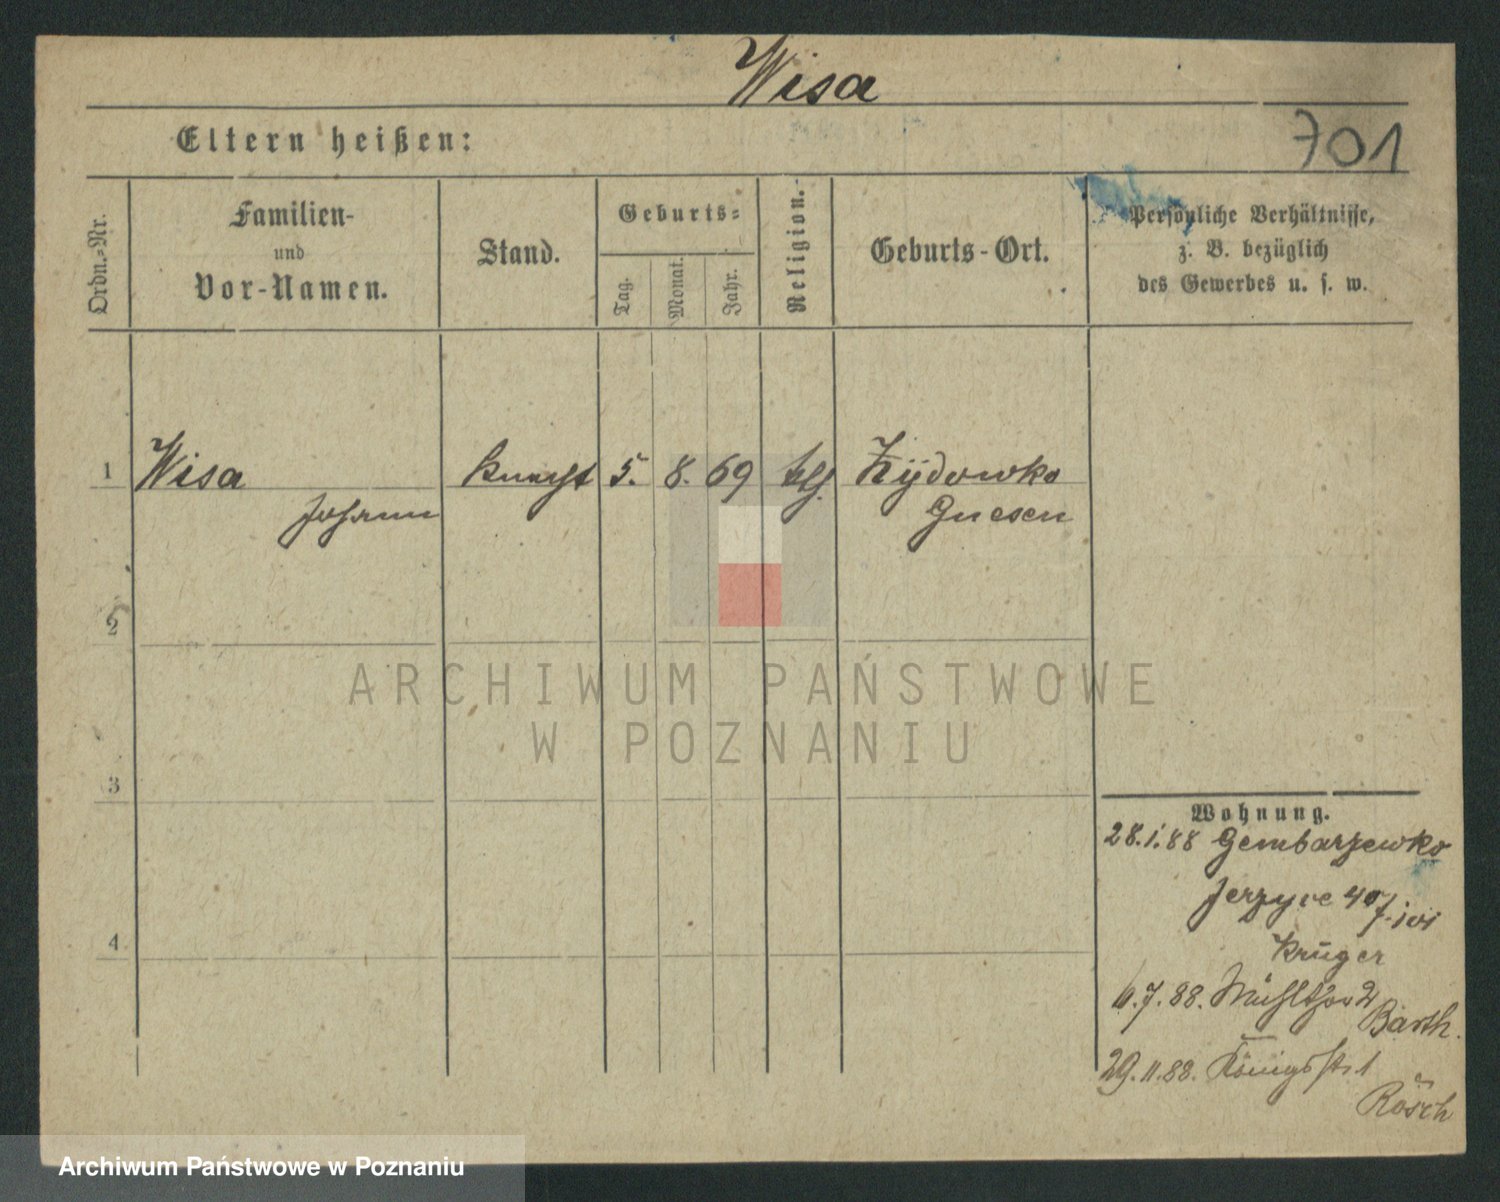 Wisa
701
Eltern heißen:
Ordn.-Nr.
Familien-
und
Vor-Namen.
Stand.
Geburts-
Tag.
Monat.
Jahr.
Religion.
Geburts-Ort.
Persönliche Verhältnisse,
z. B. bezüglich
des Gewerbes u. s. w.
1 Wisa Knecht 5. 8. 69 Zÿdowko
Johann Gnesen
2
3
4
Wohnung.
28.1.88 Gembarzewko
Jerzyce 40
Krüger
6.7.88. Mühlthor 2
Barth.
29.11.88. Königsstr 1
Rösch
ARCHIWUM PAŃSTWOWE
W POZNANIU
Archiwum Państwowe w Poznaniu